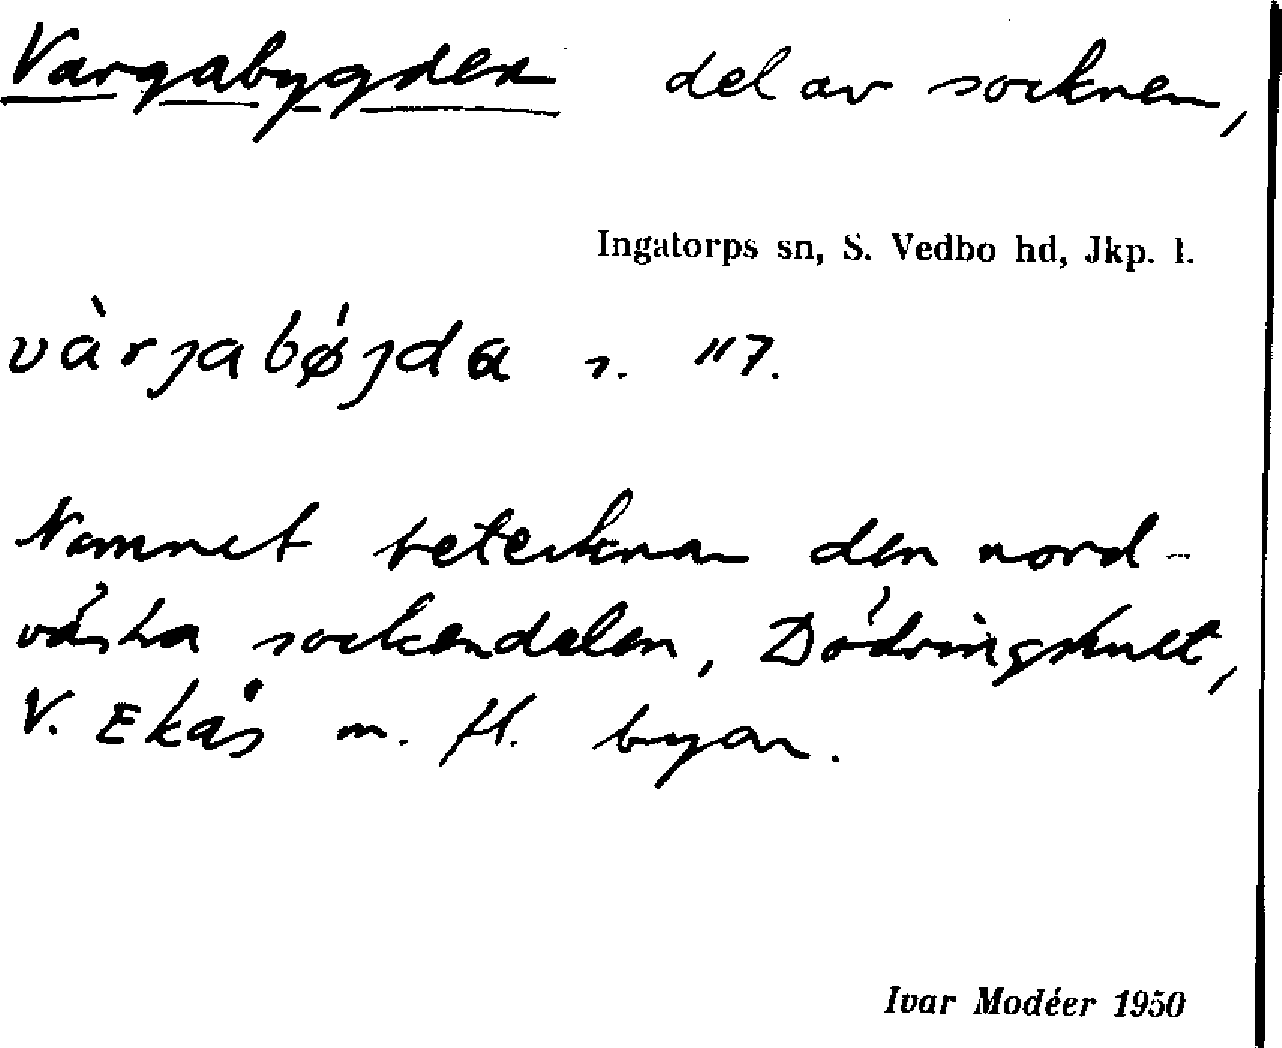 Vargabygden del av socknen,
Ingatorps sn, S. Vedbo hd, Jkp. l.
vàrjabǿjda s. "7.
Namnet betecknar den nord-
västra sockendelen, Dödringshult,
V. Ekås m. fl. byar.
Ivar Modéer 1950